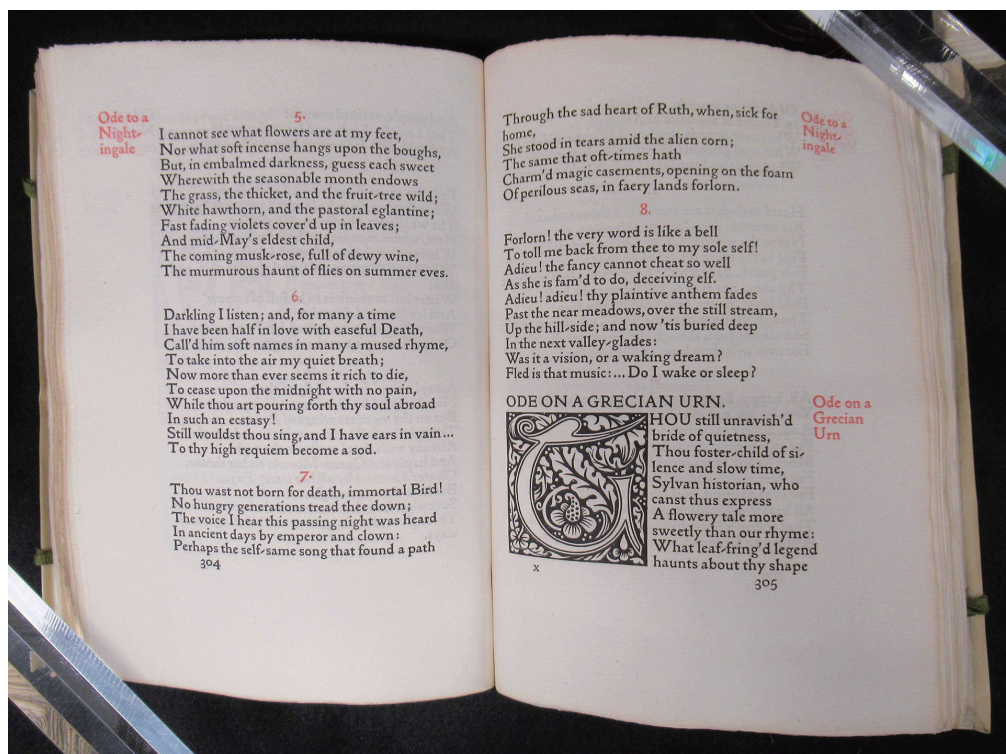 Ode to a
Night-
ingale
5.
I cannot see what flowers are at my feet,
Nor what soft incense hangs upon the boughs,
But, in embalmed darkness, guess each sweet
Wherewith the seasonable month endows
The grass, the thicket, and the fruit-tree wild;
White hawthorn, and the pastoral eglantine;
Fast fading violets cover'd up in leaves;
And mid-May's eldest child,
The coming musk-rose, full of dewy wine,
The murmurous haunt of flies on summer eves.
6.
Darkling I listen; and, for many a time
I have been half in love with easeful Death,
Call'd him soft names in many a mused rhyme,
To take into the air my quiet breath;
Now more than ever seems it rich to die,
To cease upon the midnight with no pain,
While thou art pouring forth thy soul abroad
In such an ecstasy!
Still wouldst thou sing, and I have ears in vain...
To thy high requiem become a sod.
7.
Thou wast not born for death, immortal Bird!
No hungry generations tread thee down;
The voice I hear this passing night was heard
In ancient days by emperor and clown:
Perhaps the self-same song that found a path
304
Through the sad heart of Ruth, when, sick for
home,
She stood in tears amid the alien corn;
The same that oft-times hath
Charm'd magic casements, opening on the foam
Of perilous seas, in faery lands forlorn.
Ode to a
Night-
ingale
8.
Forlorn! the very word is like a bell
To toll me back from thee to my sole self!
Adieu! the fancy cannot cheat so well
As she is fam'd to do, deceiving elf.
Adieu! adieu! thy plaintive anthem fades
Past the near meadows, over the still stream,
Up the hill-side; and now 'tis buried deep
In the next valley-glades:
Was it a vision, or a waking dream?
Fled is that music:... Do I wake or sleep?
ODE ON A GRECIAN URN.
Ode on a
Grecian
Urn
THOU still unravish'd
bride of quietness,
Thou foster-child of si-
lence and slow time,
Sylvan historian, who
canst thus express
A flowery tale more
sweetly than our rhyme:
What leaf-fring'd legend
haunts about thy shape
x
305